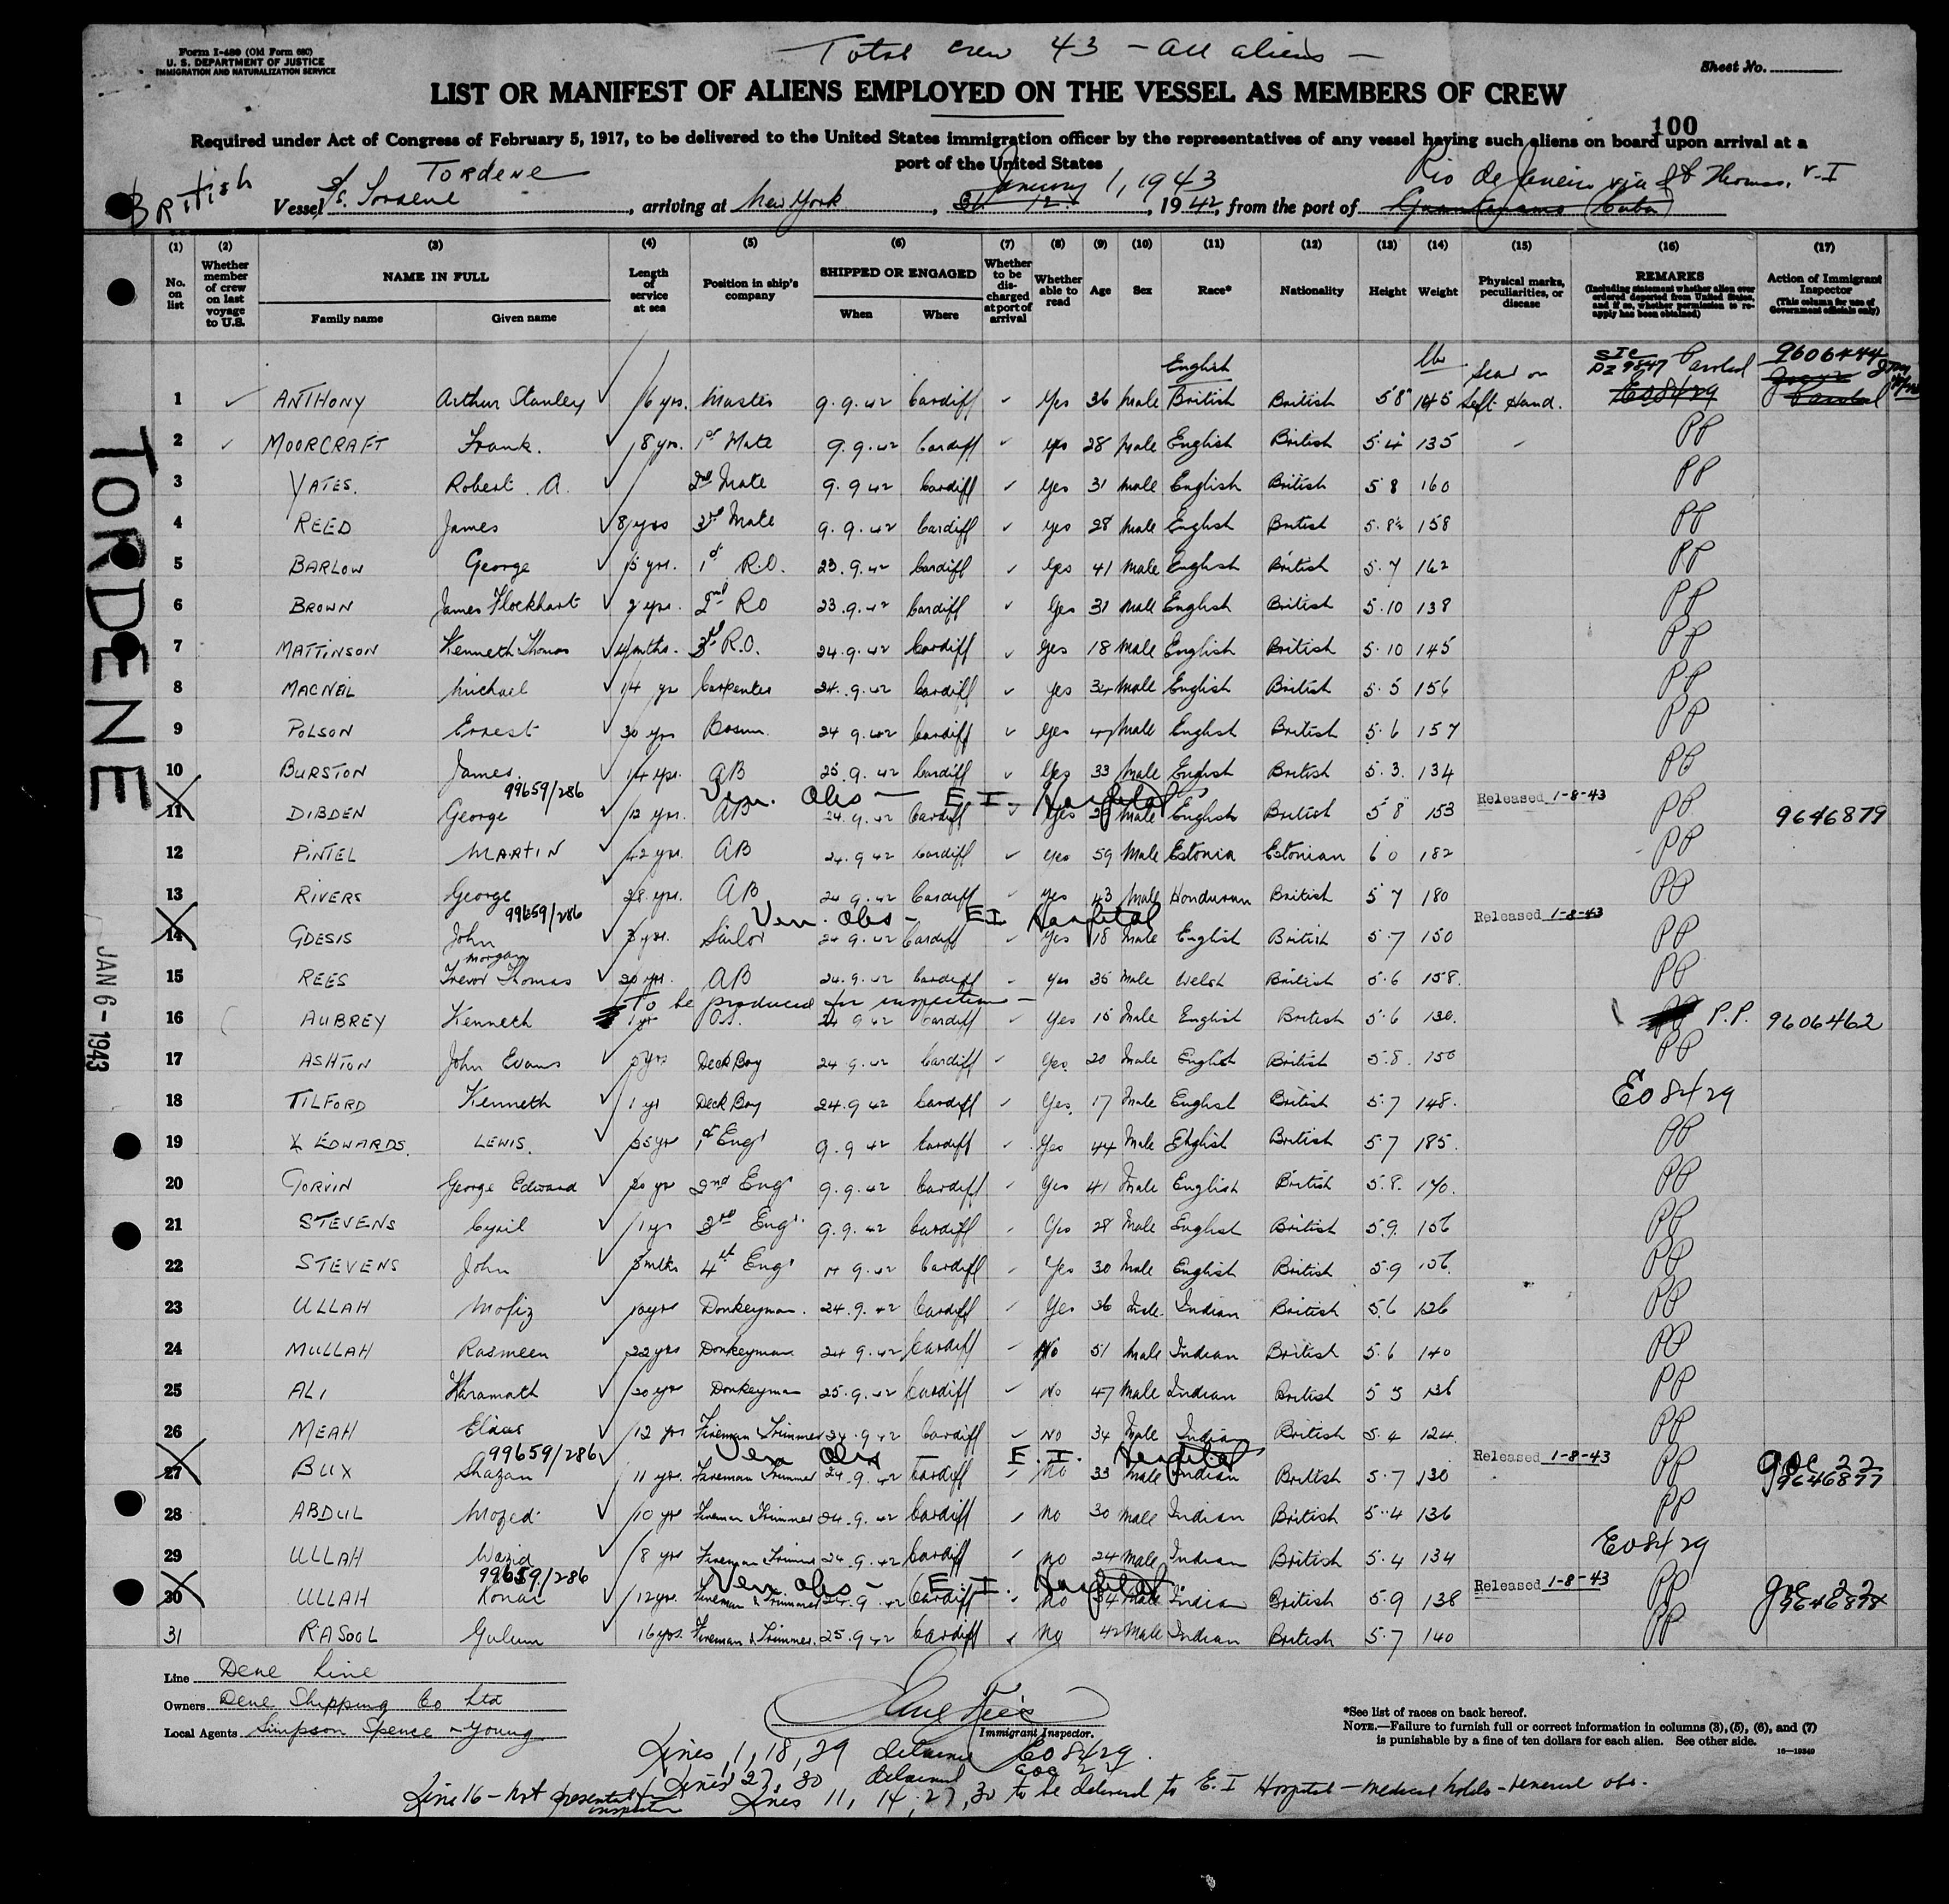 Total crew 43 - all aliens -
Form I-480 (Old Form 680)
U. S. DEPARTMENT OF JUSTICE
IMMIGRATION AND NATURALIZATION SERVICE
Sheet No.
LIST OR MANIFEST OF ALIENS EMPLOYED ON THE VESSEL AS MEMBERS OF CREW
100
Required under Act of Congress of February 5, 1917, to be delivered to the United States immigration officer by the representatives of any vessel having such aliens on board upon arrival at a
port of the United States
British TORDENE January 1, 1943 Rio de Janeiro via St Thomas. V-I
Vessel Tordene, arriving at New York, 1942, from the port of Guantanamo (Cuba)
(1) (2) (3) (4) (5) (6) (7) (8) (9) (10) (11) (12) (13) (14) (15) (16) (17)
No. on list
Whether member of crew on last voyage to U.S.
NAME IN FULL
Family name Given name
Length of service at sea
Position in ship's company
SHIPPED OR ENGAGED
When Where
Whether to be discharged at port of arrival
Whether able to read
Age
Sex
Race*
Nationality
Height
Weight
Physical marks, peculiarities, or disease
REMARKS
(Including statement whether alien ever ordered deported from United States, and if so, whether permission to reapply has been obtained)
Action of Immigrant Inspector
(This column for use of Government officials only)
English lbs Scar on 9606444
1 ANTHONY Arthur Stanley 16 yrs. Master 9.9.42 Cardiff Yes 36 Male British British 5 8" 145 left Hand. E08429
2 MOORCRAFT Frank. 8 yrs. 1st Mate 9.9.42 Cardiff yes 28 Male English British 5.4 135 PP
3 YATES. Robert. A. 2nd Mate 9.9 42 Cardiff Yes 31 Male English British 5 8 160 PP
4 REED James 8 yrs 3rd Mate 9.9.42 Cardiff yes 28 Male English British 5.8½ 158 PP
5 BARLOW George 15 yrs. 1st R.O. 23.9.42 Cardiff Yes 41 Male English British 5.7 162 PP
6 BROWN James Flockhart 2 yrs. 2nd RO 23.9.42 Cardiff Yes 31 Male English British 5.10 138 PP
7 MATTINSON Kenneth Thomas 4 mths. 3rd R.O. 24.9.42 Cardiff yes 18 Male English British 5.10 145 PP
8 MACNEIL Michael 14 yr Carpenter 24.9.42 Cardiff yes 34 Male English British 5.5 156 PP
9 POLSON Ernest 30 yrs Bosun. 24 9.42 Cardiff Yes 47 Male English British 5.6 157 PP
10 BURSTON James. 14 yrs. AB 25.9.42 Cardiff Yes 33 Male English British 5.3. 134 PP
99659/286 Ven. Obs - E I. Hospital Released 1-8-43
11 DIBDEN George 12 yrs. AB 24.9.42 Cardiff Yes Male English British 5 8 153 PP 9646879
12 PINTEL MARTIN 42 yrs. AB 24.9.42 Cardiff yes 59 Male Estonia Estonian 6 0 182 PP
13 RIVERS George 28 yrs. AB 24 9.42 Cardiff yes 43 Male Honduran British 5 7 180 PP
99659/286 Ven. Obs - EI. Hospital Released 1-8-43
14 GDESIS John 3 yrs. Sailor 24 9.42 Cardiff Yes 18 Male English British 5.7 150 PP
Morgan
15 REES Trevor Thomas 20 yrs. AB 24.9.42 Cardiff yes 35 Male Welsh British 5.6 158. PP
To be produced for inspection -
16 AUBREY Kenneth 1 yr O.S. 24 9 42 Cardiff Yes 18 Male English British 5.6 130. P.P. 9606462
17 ASHTON John Evans yrs Deck Boy 24.9.42 Cardiff Yes 20 Male English British 5.8. 150 PP
18 TILFORD Kenneth 1 yr Deck Boy 24.9 42 Cardiff Yes. 17 Male English British 5.7 148. E08429
19 EDWARDS. LEWIS. 25 yr 1st Engr 9.9 42 Cardiff Yes 44 Male English British 5.7 185. PP
20 GORVIN George Edward 20 yr 2nd Engr 9.9.42 Cardiff Yes 41 Male English British 5.8. 170. PP
21 STEVENS Cyril 1 yr 3rd Engr. 9.9.42 Cardiff Yes 28 Male English British 5.9. 156 PP
22 STEVENS John 3 mths 4th Engr 9.42 Cardiff Yes 30 Male English British 5.9 156. PP
23 ULLAH Mofiz 10 yrs Donkeyman. 24.9.42 Cardiff Yes 36 Male. Indian British 5.6 126 PP
24 MULLAH Rasmeen 22 yrs Donkeyman. 24 9.42 Cardiff No 51 Male Indian British 5.6 140 PP
25 ALI Haramath 20 yr Donkeyman 25.9.42 Cardiff No 47 Male Indian British 5 5 136 PP
26 MEAH Elias 12 yrs Fireman Trimmer 24.9.42 Cardiff NO 34 Male Indian British 5.4 124 PP
99659/286 Ven Obs E. I. Hospital Released 1-8-43
27 BUX Shazan 11 yrs. Fireman Trimmer 24.9.42 Cardiff No 33 Male Indian British 5.7 130 PP 9646877
28 ABDUL Mozed 10 yr Fireman Trimmer 24.9.42 Cardiff No 30 Male Indian British 5.4 136 PP
29 ULLAH Wazid 8 yr Fireman Trimmer 24.9.42 Cardiff no 24 Male Indian British 5.4 134 E08429
99659/286 Ven. Obs - E. I. Hospital Released 1-8-43
30 ULLAH Konai 12 yrs. Fireman & Trimmer 24.9.42 Cardiff No 34 Male Indian British 5.9 138 PP 9646878
31 RASOOL Gulum 16 yrs. Fireman & Trimmer. 25.9.42 Cardiff No 42 Male Indian British 5.7 140 PP
TORDENE
JAN 6-1943
Line Dene Line
Owners Dene Shipping Co Ltd
Local Agents Simpson Spence & Young
Immigrant Inspector.
*See list of races on back hereof.
NOTE.—Failure to furnish full or correct information in columns (3), (5), (6), and (7)
is punishable by a fine of ten dollars for each alien. See other side.
16—19349
Lines 1, 18, 29 detained E08429.
Lines 27, 30 detained
Line 16 - Not presented for inspection Lines 11, 14, 27, 30 to be delivered to E. I Hospital - medical holds - venereal obs.